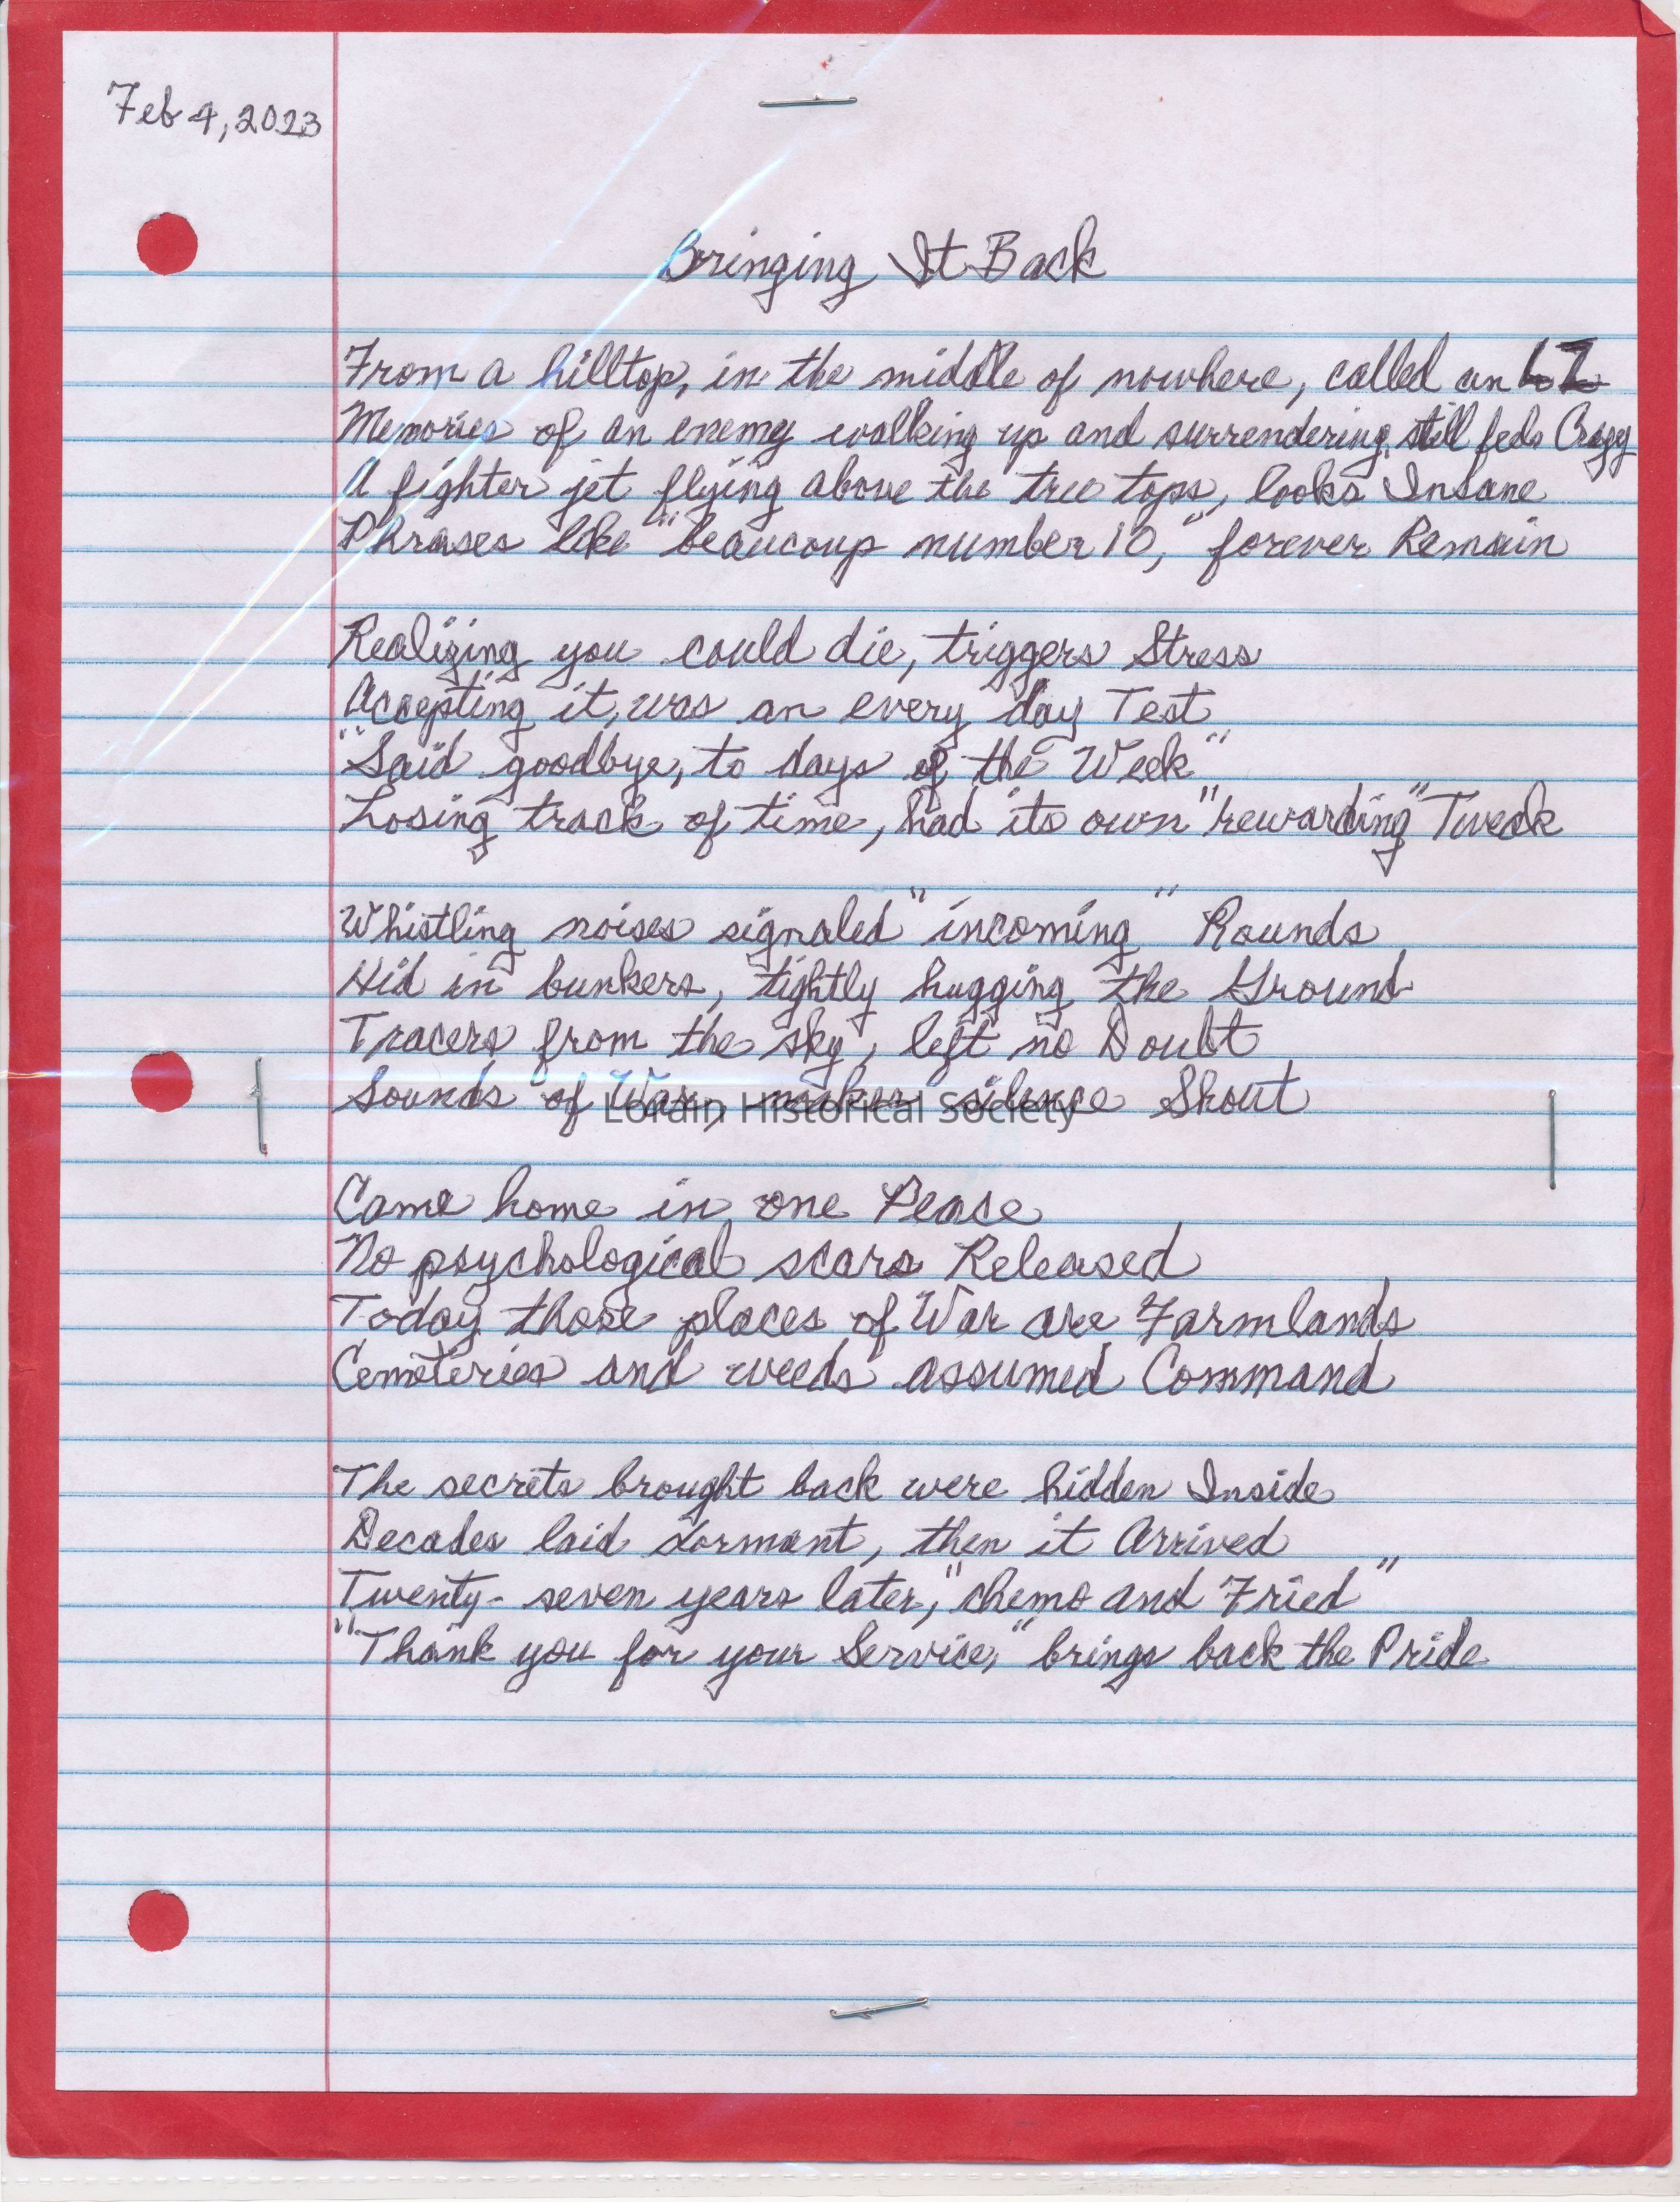 Feb 4, 2023
Bringing It Back
From a hilltop, in the middle of nowhere, called an LZ
Memories of an enemy walking up and surrendering, still feels Crazy
A fighter jet flying above the tree tops, looks Insane
Phrases like "beaucoup number 10," forever Remain
Realizing you could die, triggers Stress
Accepting it, was an every day Test
"Said goodbye, to days of the Week"
Losing track of time, had its own "rewarding" Tweak
Whistling noises signaled "incoming" Rounds
Hid in bunkers, tightly hugging the Ground
Tracers from the sky, left no Doubt
Sounds of War, makes silence Shout
Lorain Historical Society
Came home in one Peace
No psychological scars Released
Today those places of War are Farmlands
Cemeteries and weeds assumed Command
The secrets brought back were hidden Inside
Decades laid dormant, then it Arrived
Twenty-seven years later, "chemo and Fried"
"Thank you for your Service," brings back the Pride